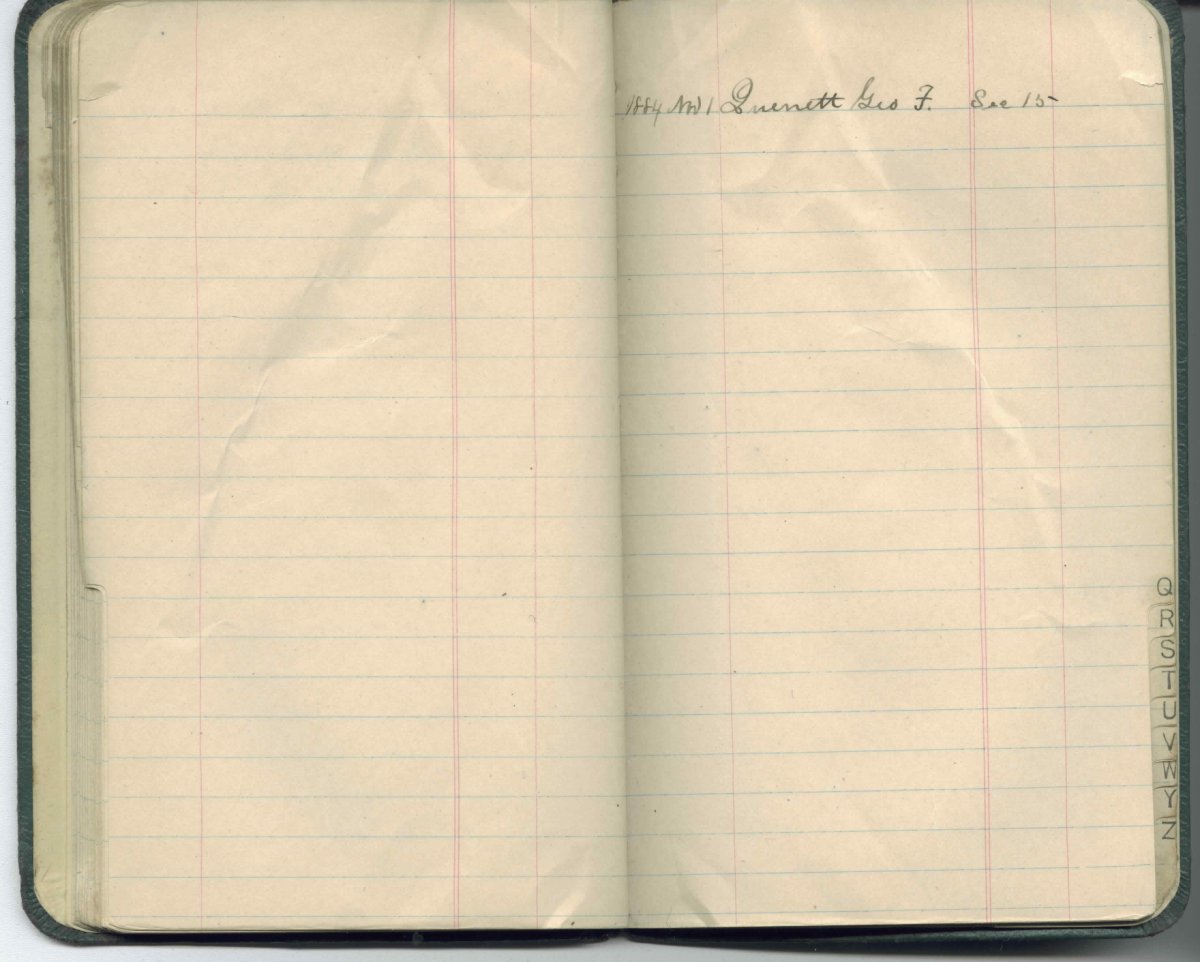 1884 Nov 1 Querrett Geo F. Sec 15
Q
R
S
T
U
V
W
Y
Z